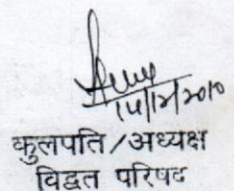 14/12/2010
कुलपति/अध्यक्ष
विद्वत परिषद